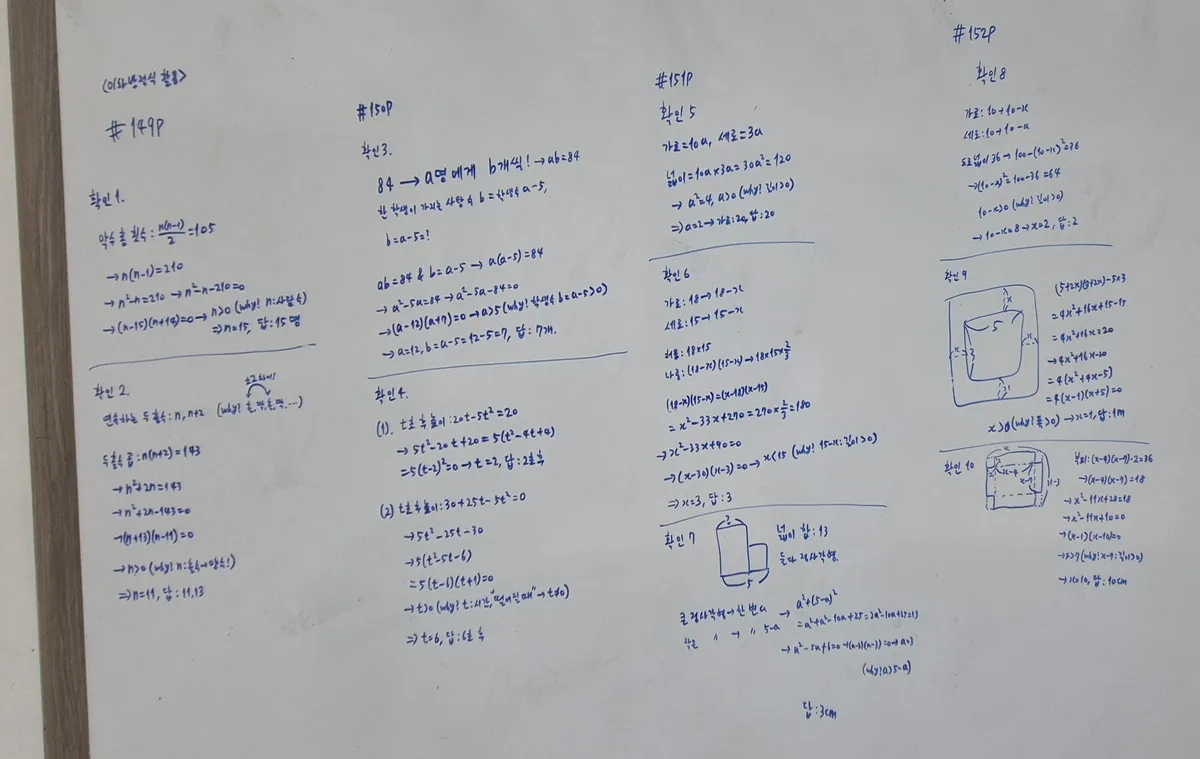 <이차방정식 활용>
#149P
확인 1.
악수 총 횟수: n(n-1)/2=105
→n(n-1)=210
→n²-n=210 →n²-n-210=0
→(n-15)(n+14)=0→n>0 (why! n:사람 수)
⇒n=15, 답: 15명
확인 2.
±2 차이!
연속하는 두 홀수: n, n+2 (why! 홀,짝,홀,짝,...)
두 홀수 곱: n(n+2)=143
→n²+2n=143
→n²+2n-143=0
→(n+13)(n-11)=0
→n>0 (why! n:홀수→양수!)
⇒n=11, 답: 11,13
#150P
확인3.
84 → a명에게 b개씩! →ab=84
한 학생이 가지는 사탕 수 b = 학생수 a-5,
b=a-5=!
ab=84 & b=a-5 → a(a-5)=84
→a²-5a=84→a²-5a-84=0
→(a-12)(a+7)=0→a>5 (why! 학생수 b=a-5>0)
→a=12, b=a-5=12-5=7, 답: 7개.
확인4.
(1). t초 후 높이:20t-5t²=20
→5t²-20t+20=5(t²-4t+4)
=5(t-2)²=0→t=2, 답: 2초 후
(2) t초 후 높이:30+25t-5t²=0
→5t²-25t-30
→5(t²-5t-6)
=5(t-6)(t+1)=0
→t>0 (why? t:시간, "떨어질 때"→t≠0)
⇒t=6, 답: 6초 후
#151P
확인 5
가로=10a, 세로=3a
넓이=10a×3a=30a²=120
→a²=4, a>0 (why! 길이>0)
⇒a=2→가로:20, 답: 20
확인 6
가로: 18→18-x
세로: 15→15-x
처음: 18×15
나중: (18-x)(15-x)→18×15×2/3
(18-x)(15-x)=(x-18)(x-15)
=x²-33x+270=270×2/3=180
→x²-33x+90=0
→(x-30)(x-3)=0→x<15 (why! 15-x:길이>0)
⇒x=3, 답: 3
확인 7
5
넓이 합: 13
둘다 정사각형.
큰 정사각형→한 변 a → a²+(5-a)²
작은 〃 → 〃 5-a =a²+a²-10a+25=2a²-10a+25=13
→a²-5a+6=0→(a-3)(a-2)=0→a=3
(why! a>5-a)
답: 3cm
#152P
확인 8
가로: 10→10-x
세로: 10→10-x
도로넓이 36→100-(10-x)²=36
→(10-x)²=100-36=64
10-x>0 (why! 길이>0)
→10-x=8→x=2, 답: 2
확인 9
x
5
x 3 x
(5+2x)(3+2x)-5×3
=4x²+16x+15-15
=4x²+16x=20
→4x²+16x-20
=4(x²+4x-5)
=4(x-1)(x+5)=0
x>0 (why! 폭>0)→x=1, 답: 1m
확인 10
x
x-4
x-7
x-3
부피: (x-4)(x-7)·2=36
→(x-4)(x-7)=18
→x²-11x+28=18
→x²-11x+10=0
→(x-1)(x-10)=0
→x>7 (why! x-7:길이>0)
→x=10, 답: 10cm